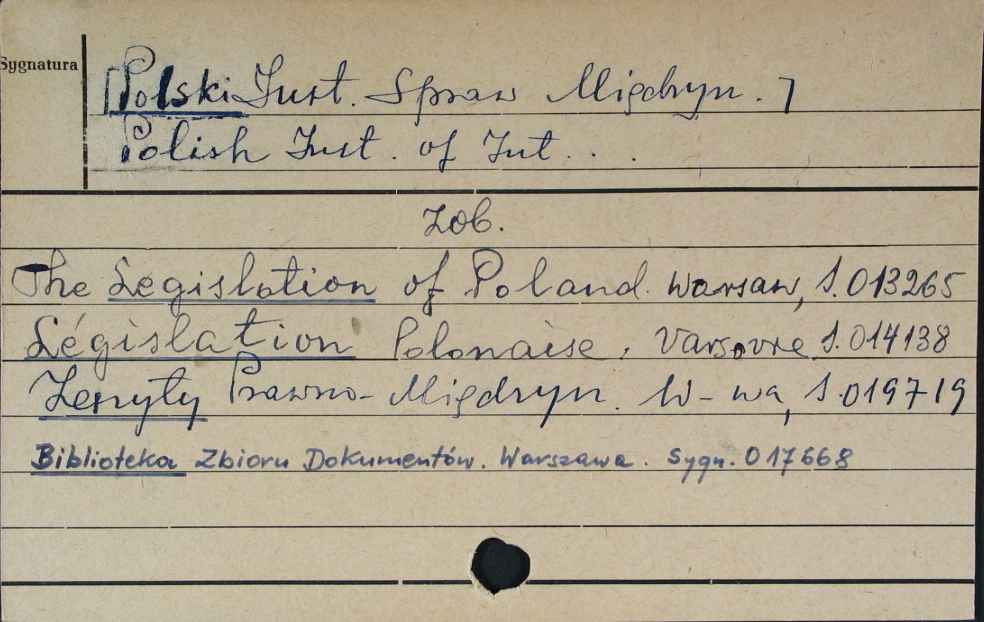 Sygnatura
[Polski Inst. Spraw Międzyn.]
Polish Inst. of Int...
Zob.
The Legislation of Poland. Warsaw, S. 013265
Législation Polonaise, Varsovie S. 014138
Zeszyty Prawno-Międzyn. W-wa, S. 019719
Biblioteka Zbioru Dokumentów. Warszawa. Sygn. 017668